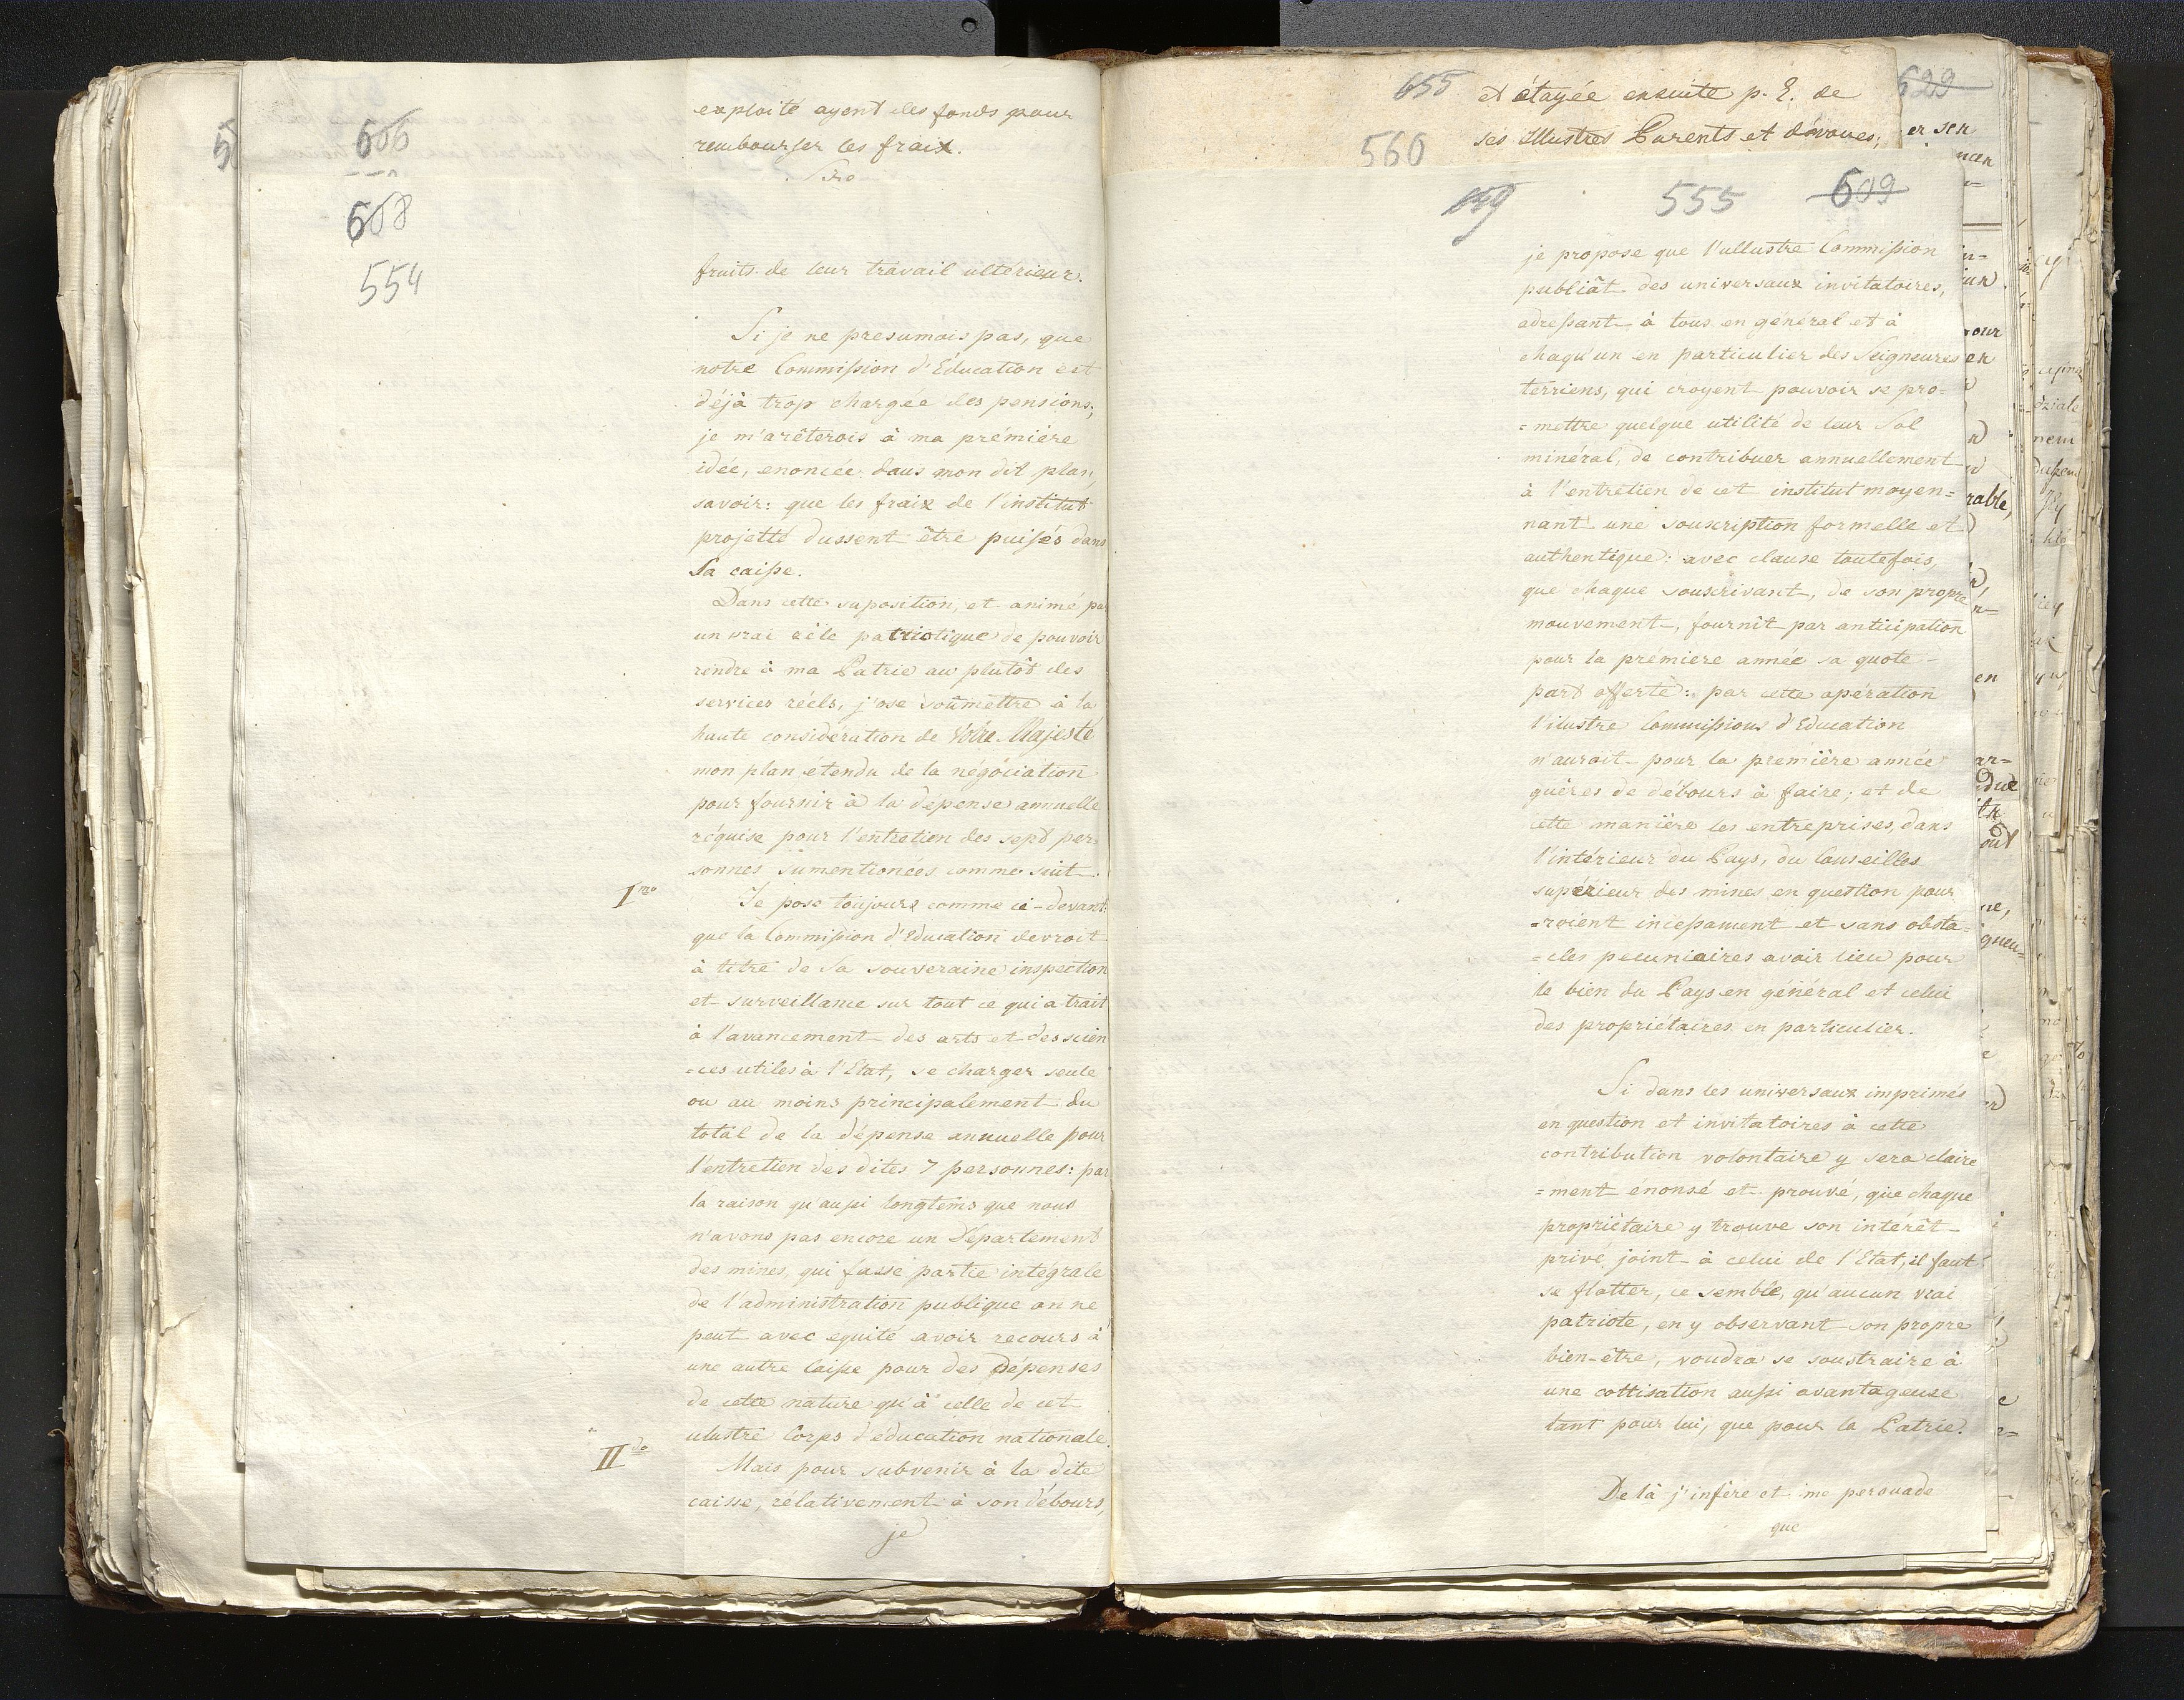 606
exploité ayent des fonds pour
rembourser les fraix.
608
554
fruits de leur travail ultérieur.
Si je ne presumois pas, que
notre Commission d'Éducation est
déjà trop chargee des pensions;
je m'arêterois à ma prémiére
idée, enoncée dans mon dit plan,
savoir: que les fraix de l'institut
projetté dussent être puisés dans
Sa caisse.
Dans cette suposition, et animé par
un vrai zèle patriotique de pouvoir
rendre à ma Patrie au plutôt des
services réels, j'ose soûmettre à la
haute considération de Vôtre Majesté
mon plan étendu de la négociation
pour fournir à la dépense annuelle
réquise pour l'entretien des sept per
sonnes sumentionées comme suit.
I mo
Je pose toujours comme ci-devant:
que la Commission d'Education devroit
à titre de Sa souveraine inspection
et surveillance sur tout ce qui a trait
à l'avancement des arts et des scien
=ces utiles à l'Etat, se charger seule
ou au moins principalement du
total de la dépense annuelle pour
l'entretien des dites 7 personnes: par
la raison qu'aussi longtems que nous
n'avons pas encore un Département
des mines, qui fasse partie intégrale
de l'administration publique on ne
peut avec equité avoir recours à
une autre Caisse pour des dépenses
de cette nature qu'à celle de cet
illustre Corps d'éducation nationale.
II do
Mais pour subvenir à la dite
caisse, rélativement à son débours,
je
655
et étayée ensuite p. E. de
629
560
ses Illustres Parents et dévoues;
659
555
609
je propose que l'ullustre Commission
publiât des universaux invitatoires,
adressant à tous en général et à
chaqu'un en particulier des Seigneures
terriens, qui croyent pouvoir se pro=
=mettre quelque utilité de leur Sol
minéral, de contribuer annuellement
à l'entretien de cet institut moyen=
nant une souscription formelle et
authentique: avec clause toutefois,
que chaque souscrivant, de son propre
mouvement, fournît par anticipation
pour la prémiere année sa quote-
part offerte: par cette opération
l'ilustre Commissions d'Education
n'auroit pour la premiére année
guères de débours à faire; et de
cette maniére les entreprises, dans
l'intérieur du Pays, du Conseilles
supérieur des mines en question pour
=roient incessament et sans obsta=
=cles pecuniaires avoir lieu pour
le bien du Pays en général et celui
des propriétaires en particulier.
Si dans les universaux imprimés
en question et invitatoires à cette
contribution volontaire y sera claire
=ment énonsé et prouvé, que chaque
propriétaire y trouve son intérêt
privé joint à celui de l'Etat, il faut
se flatter, ce semble, qu'aucun vrai
patriote, en y observant son propre
bien-être, voudra se soustraire à
une cottisation aussi avantageuse
tant pour lui, que pour la Patrie.
De là j'infère et me persuade
que